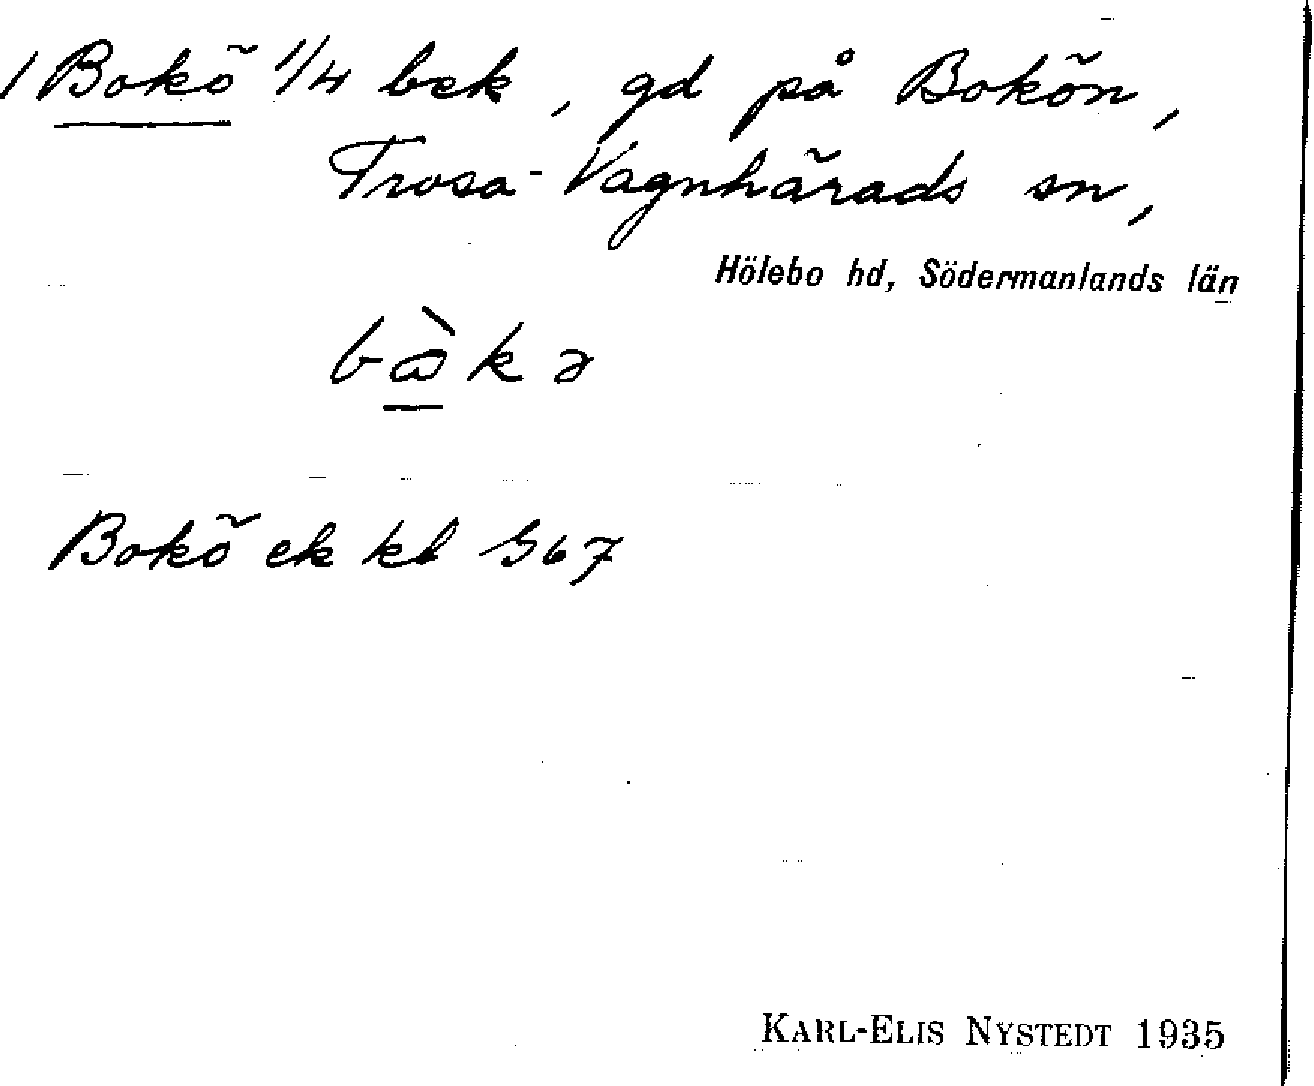 / Bokö 1/4 bek, gd på Bokön,
Trosa-Vagnhärads sn,
Hölebo hd, Södermanlands län
Bokö ek kl 567
KARL-ELIS NYSTEDT 1935